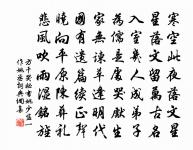 寒空此夜落文星
星落文留萬古名
入室幾人成弟子
為儒是處哭先生
家無諫草逢明代
國有遺篇續正聲
曉向平原陳葬禮
悲風吹雨濕銘旌
方干哭秘書姚少監一
作姚丞詞典網集